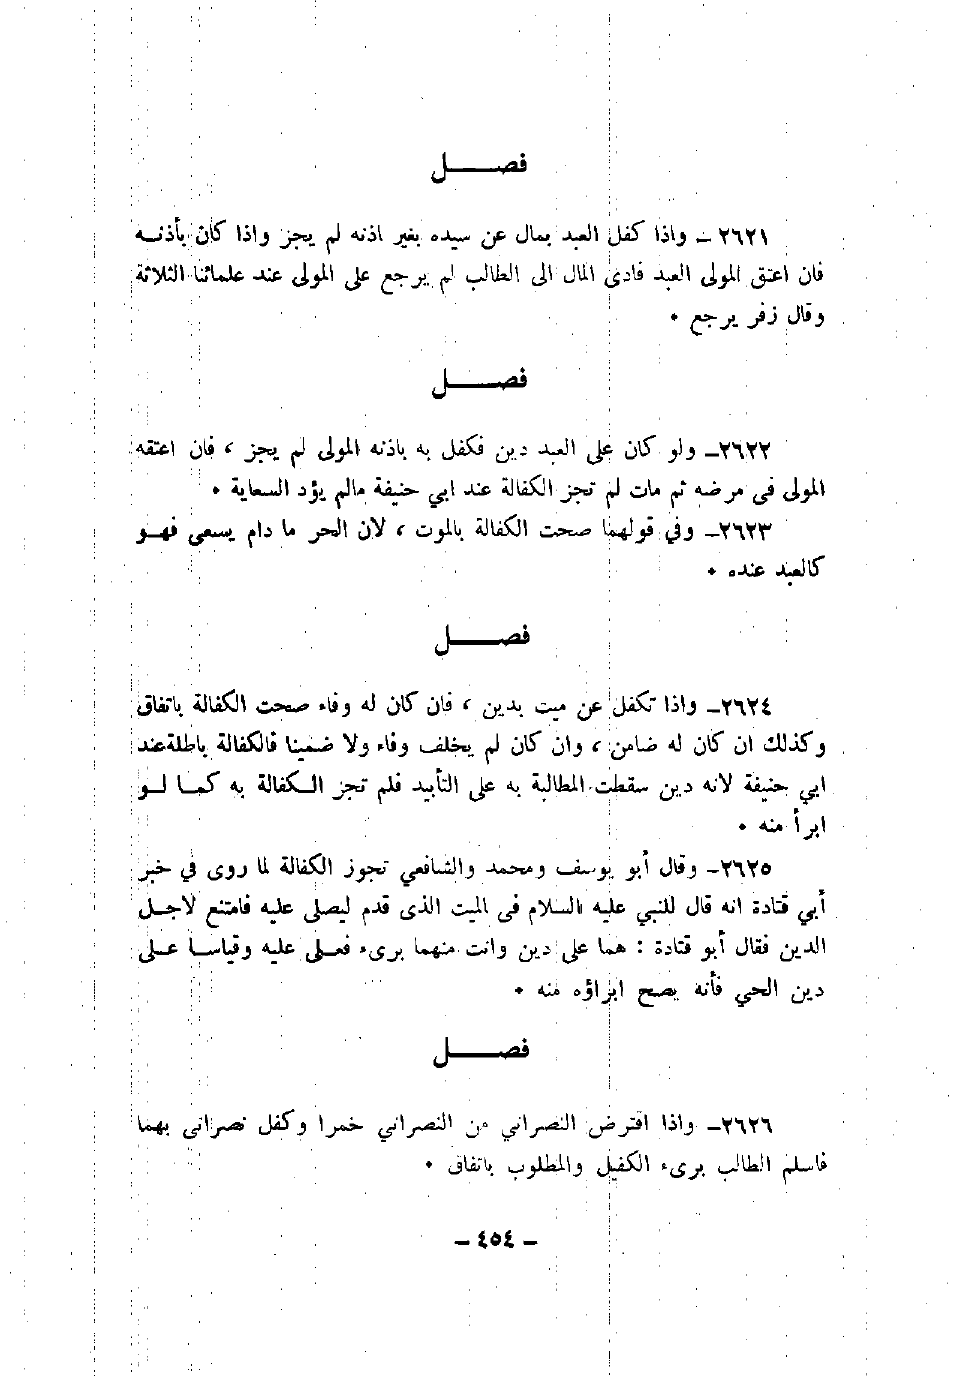 فصـــــل
٢٦٢١ – واذا كفل العبد بمال عن سيده بغير اذنه لم يجز واذا كان بأذنــه
فان اعتق المولى العبد فادى المال الى الطالب لم يرجع على المولى عند علمائنا الثلاثة
وقال زفر يرجع ٠
فصـــــل
٢٦٢٢– ولو كان على العبد دين فكفل به باذنه المولى لم يجز ، فان اعتقه
المولى فى مرضه ثم مات لم تجز الكفالة عند ابي حنيفة مالم يؤد السعاية ٠
٢٦٢٣– وفي قولهما صحت الكفالة بالموت ، لان الحر ما دام يسعى فهــو
كالعبد عنده ٠
فصـــــل
٢٦٢٤– واذا تكفل عن ميت بدين ، فان كان له وفاء صحت الكفالة باتفاق
وكذلك ان كان له ضامن ، وان كان لم يخلف وفاء ولا ضمينا فالكفالة باطلة عند
ابي حنيفة لانه دين سقطت المطالبة به على التأبيد فلم تجز الــكفالة به كمــا لــو
ابرأ منه ٠
٢٦٢٥– وقال أبو يوسف ومحمد والشافعي تجوز الكفالة لما روى في خبر
أبي قتادة انه قال للنبي عليه السلام فى الميت الذى قدم ليصلى عليه فامتنع لاجــل
الدين فقال أبو قتادة : هما على دين وانت منهما برىء فصــلى عليه وقياســا علــى
دين الحي فأنه يصح ابراؤه منه ٠
فصـــــل
٢٦٢٦– واذا اقترض النصراني من النصراني خمرا وكفل نصرانى بهما
فاسلم الطالب برىء الكفيل والمطلوب باتفاق ٠
– ٤٥٤ –